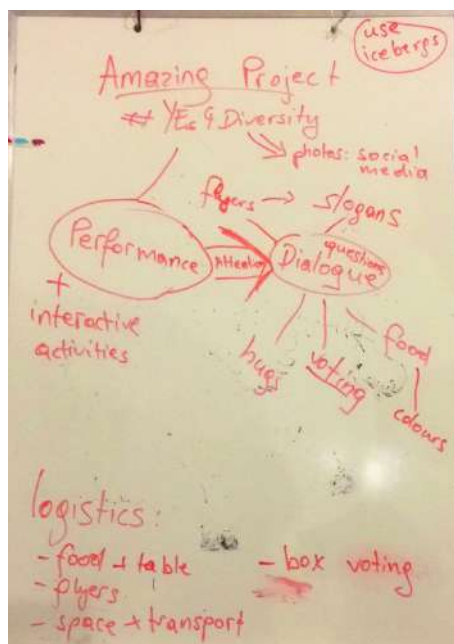 use
icebergs
Amazing Project
# YEs 4 Diversity
photos: social
media
flyers → slogans
Performance
Attention
questions
Dialogue
+
interactive
activities
hugs
voting
food
colours
logistics:
- food + table
- box voting
- flyers
- space + transport